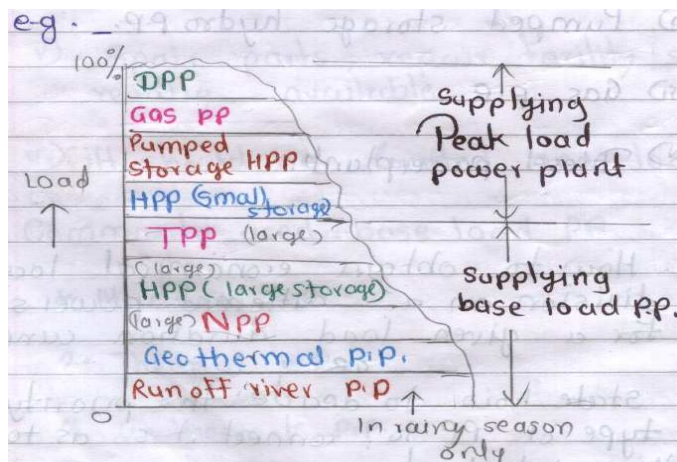 e-g. _
100%
DPP
Gas pp
Pumped
storage HPP
HPP (small
storage)
TPP (large)
(large)
HPP (large storage)
(large) NPP
Geothermal p.p.
Run off river p.p
0
Load
Supplying
Peak load
power plant
Supplying
base load pp.
In rainy season
only